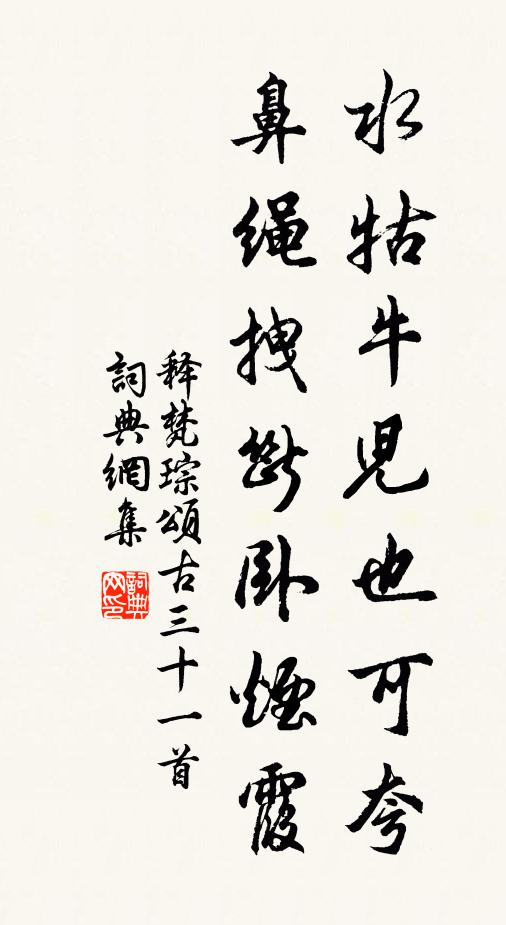 水牯牛児也可夸
鼻繩拽斷卧煙霞
释梵琮頌古三十一首
詞典網集
詞典网印